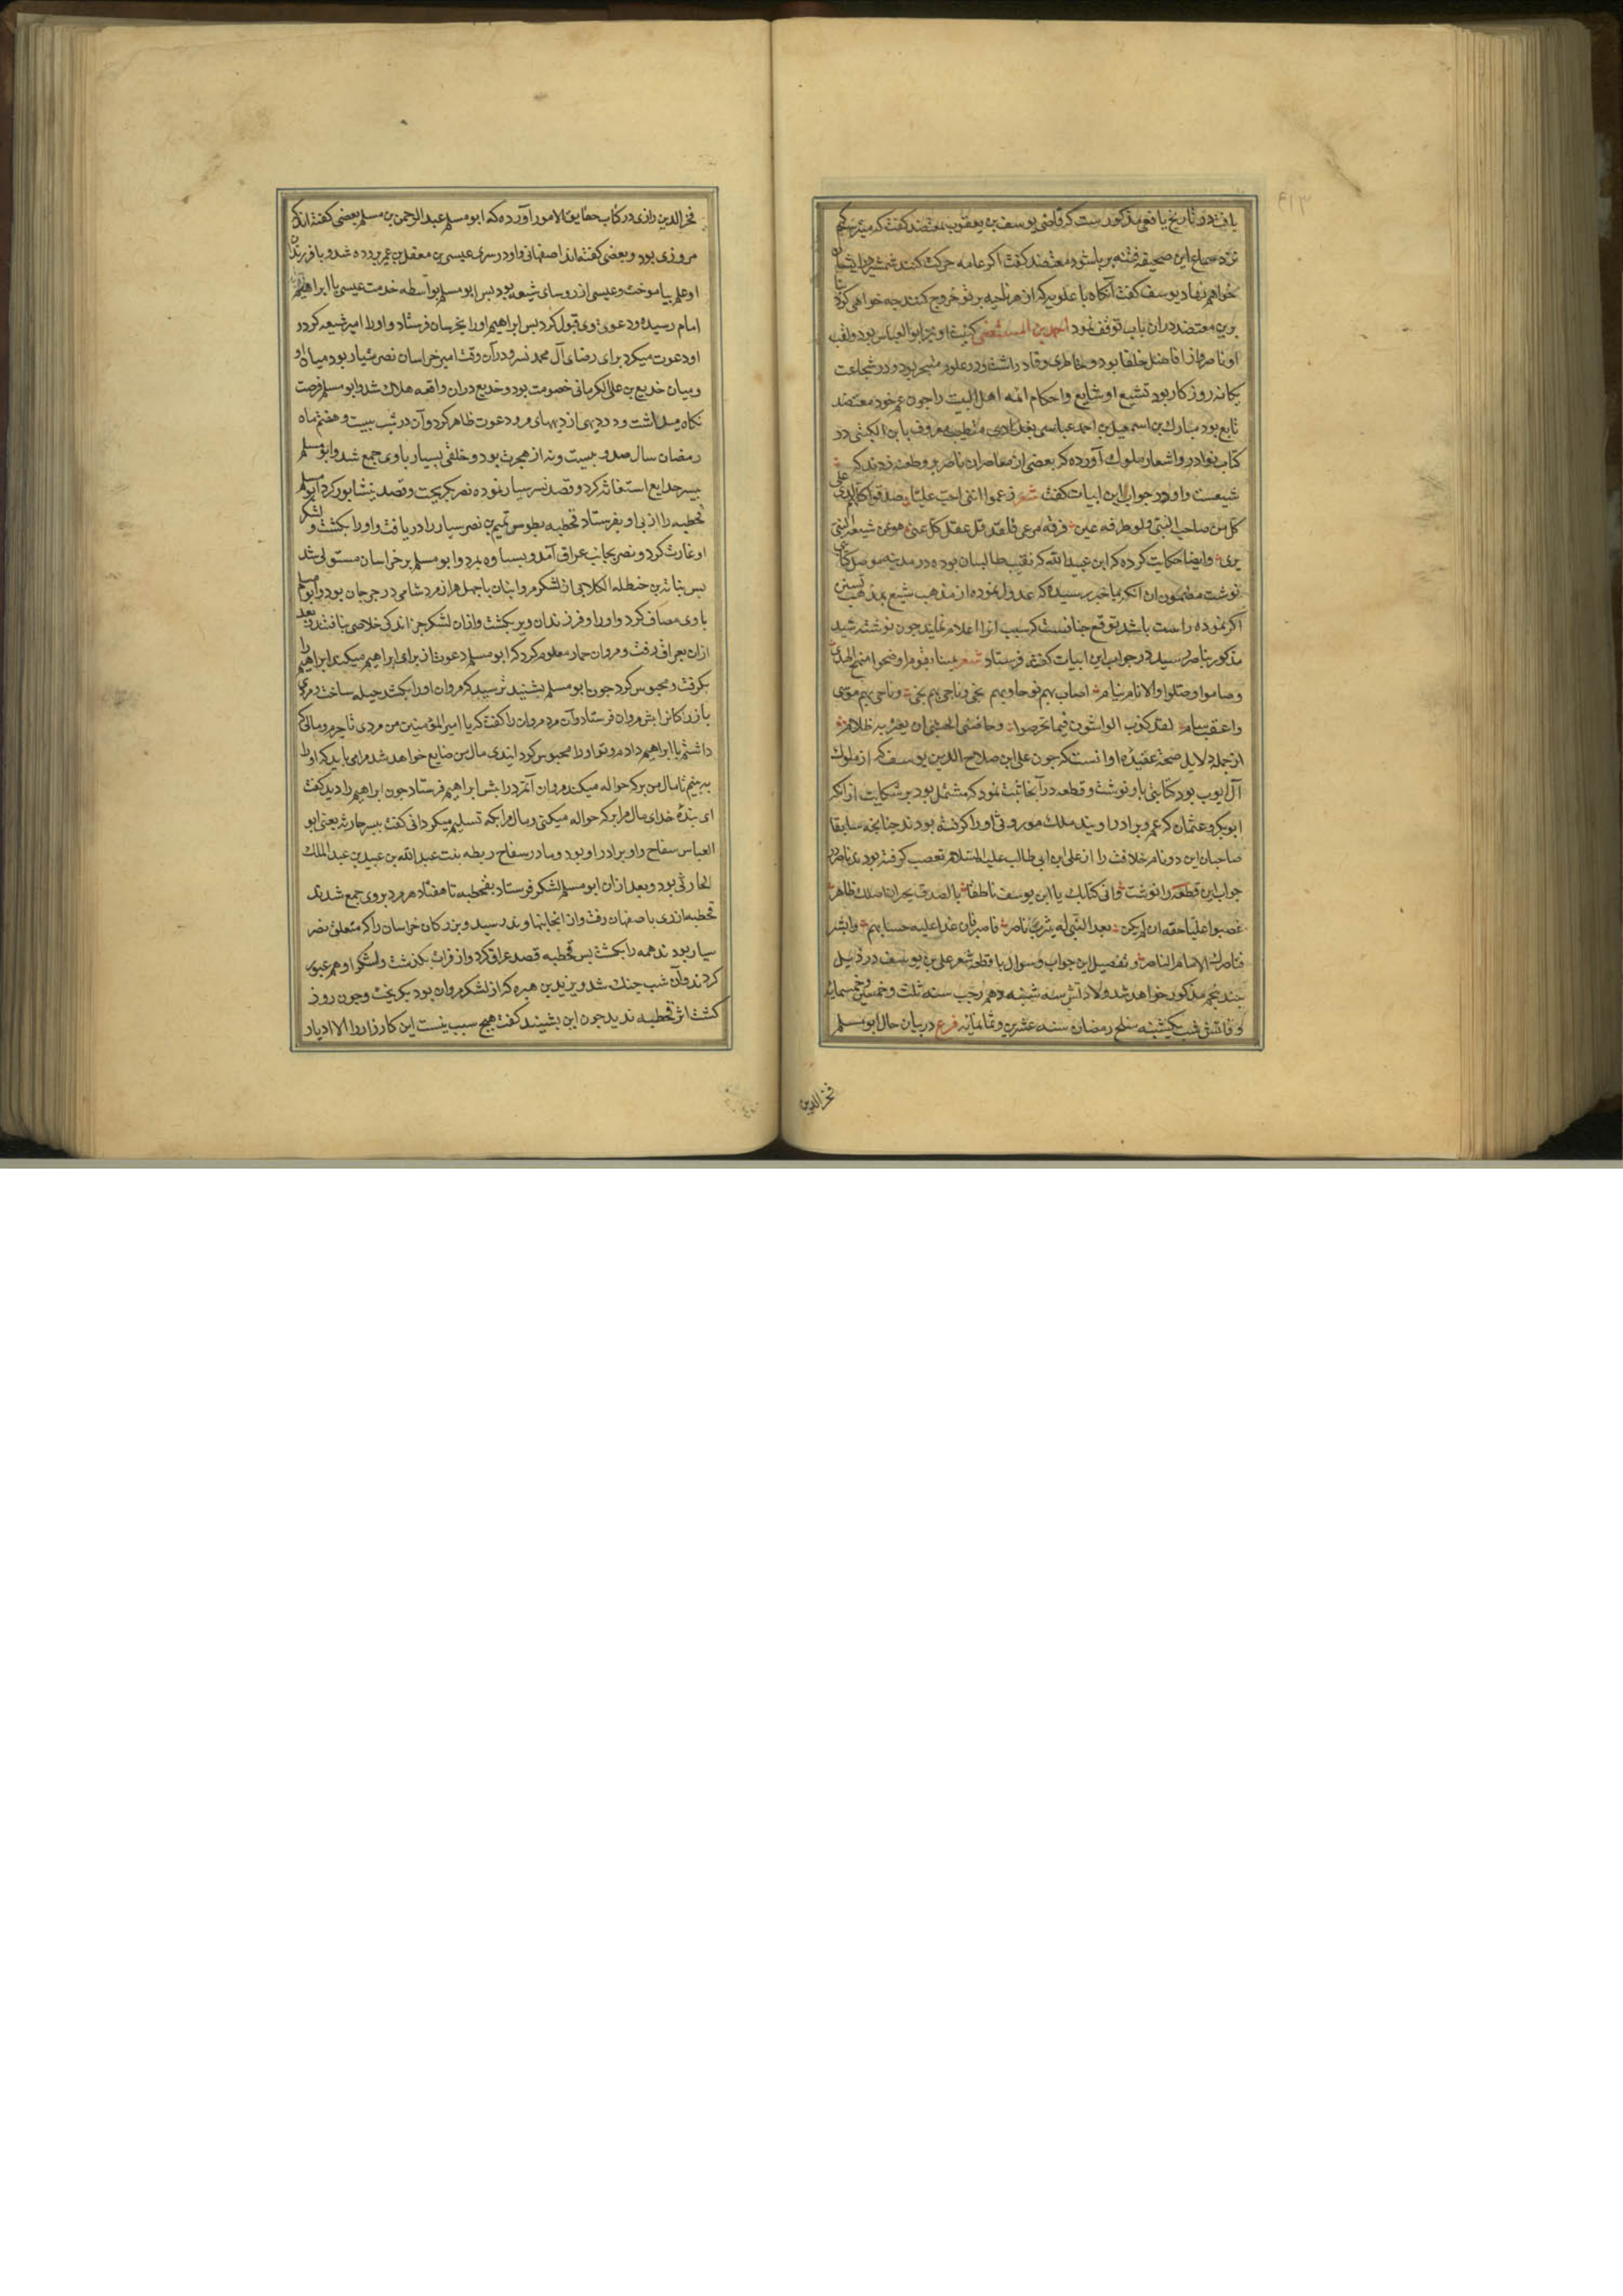 یافت و در تاریخ یافعی مذکورست که قاضی یوسف بن یعقوب بمعتضد گفت که میترسم که
نزد سماع این صحیفه فتنه برپا شود معتضد گفت اگر عامه حرکت کنند شمشیر در ایشان
خواهم نهاد یوسف گفت آنگاه با علویه که از هر ناحیه بر تو خروج کنند چه خواهی کرد بنا
برین معتضد دران باب توقف نمود احمد بن المستضی کنیت او نیز ابو العباس بود و لقب
او ناصر و از افاضل خلفا بود و خاطری وقاد داشت و در علوم متبحر بود و در شجاعت
یکانه روزکار بود تشیع او شایع و احکام ائمه اهل البیت را جون عم خود معتضد
تابع بود مبارک بن اسمعیل بن احمد عباسی بغدادی متطبب معروف بابن الکبتی در
کتاب نوادر و اشعار ملوک آورده که بعضی از معاصران ناصر برو طعنه زدند که
شیعیست و او در جواب این ابیات گفت شعر زعموا اننی احب علیا صدقوا کلهم لدی علی
کل من صاحب النبی ولو طرفه عین فرقه مرعی فلقد قل عقل کل عنی هو من شیعه النبی
بری وایضا حکایت کرده که ابن عبید الله که نقیب طالبیان بوده در مدینه موصل کتابتی
نوشت مضمون آن انکه بما خبر رسیده که عدول نموده از مذهب شیع بمذهب تسنن
اکر نموده راست باشد توقع جنانست که سبب انرا اعلام نمایند جون نوشته رشید
مذکور بناصر رسید در جواب این ابیات گفته فرستاد شعر یمینا بقوم اوضحوا منهج الهدی
و صاموا و صلوا و الانام نیام اصاب بهم نوحا و بهم نجی و ناجی بهم موسی
واعقب سام لقد کذب الواشون فیما تخرصوا وحاشی الضحی ان یعتریه ظلام و
از جمله دلایل صحة عقیده او انست که جون علی بن صلاح الدین یوسف که از ملوک
آل ایوب بود کتابتی باو نوشت و قطعه در آنجا ثبت نمود که مشتمل بود بر شکایت از انکه
ابوبکر و عثمان که عم و برادر او یند ملک موروثی او را کرفته بودند جنانجه سابقا
صاحبان این دو نام خلافت را از علی ابن ابی طالب علیه السلام بتعصب کرفته بودند ناصر در
جواب این قطعه را نوشت وافی کتابک یا ابن یوسف ناطقا بالصدق یخبر ان اصلک ظاهر
غصبوا علیا حقه ان لم یکن بعد النبی له یثرب ناصر فاصبر فان غدا علیه حسابهم وابشر
فناصرک الامام الناصر و تفصیل این جواب و سوال با قطعه شعر علی بن یوسف در ذیل
جند پنجم مذکور خواهد شد ولادتش سه شنبه دهم رجب سنه ثلث و خمسین و خمسمائه
وفاتش شب یکشنبه سلخ رمضان سنه عشرین و ثمانمائه فرع در بیان حال ابومسلم
فخر الدین
فخر الدین رازی در کتاب حقایق الامور آورده که ابومسلم عبد الرحمن بن مسلم بعضی گفته اند که
مروزی بود و بعضی گفته اند اصفهانی و او در سرای عیسی بن معقل بن عمیر پرورده شد و با فرزندان
او علم بیاموخت و عیسی از روسای شیعه بود پس ابو مسلم بواسطه خدمت عیسی با ابراهیم
امام رسیده و دعوی وی قبول کرد پس ابراهیم او را بخرسان فرستاد و او را امیر شیعه کرد و
او دعوت میکرد برای رضای آل محمد نسر و در آن وقت امیر خراسان نصر سیار بود میان او
و میان خدیع بن علی الکرمانی خصومت بود و خدیع دران واقعه هلاک شد و ابو مسلم فرصت
نکاه میداشت و در دیهی از دیههای مرو دعوت ظاهر کرد و آن در شب بیست و هفتم ماه
رمضان سال صد و بیست و نه از هجرت بود و خلقی بسیار با وی جمع شد و ابو مسلم
بپسر خدایع استعانه کرد و قصد نسر سیار نموده نصر بکریخت و قصد نیشابور کرد ابو مسلم
قحطبه را از پی او بفرستاد قحطبه بطوس تمیم بن نصر سیار را دریافت و او را بکشت و لشکر
او غارت کرد و نصر بجانب عراق آمد و بساوه بمرد و ابو مسلم بر خراسان مستولی شد
پس بنانه بن حنظله الکلابی از لشکر مروانیان با جهل هزار مرد شامی در جرجان بود و ابو مسلم
با وی مصاف کرد و او را و فرزندان ویرا بکشت و ازان لشکر جز اندکی خلاصی نیافتند و بعد
ازان بعراق رفت و مروان حمار معلوم کرد که ابو مسلم دعوت از برای ابراهیم میکند ابراهیم را
بکرفت و محبوس کرد جون ابو مسلم بشنید ترسید که مروان او را بکشد حیله ساخت و مردی
بازرکانرا بش مروان فرستاد و آن مرد مروان را گفت که یا امیر المؤمنین من مردی تاجرم و مالی که
داشتم با ابراهیم دادم و تو او را محبوس کرد انیدی مال من ضایع خواهد شد مرا می باید که او را
به بینم تا مال من بر که حواله میکند مروان آنمرد را بش ابراهیم فرستاد جون ابراهیم را دید گفت
ای بندهٔ خدای مال مرا بر که حواله میکنی و مال مرا بکه تسلیم میکردانی گفت بپسر حارثیه یعنی ابو
العباس سفاح و او برادر او بود و مادر سفاح ریطه بنت عبد الله بن عبید بن عبد الملک
الحارثی بود و بعد ازان ابو مسلم لشکر فرستاد بقحطبه تا هفتاد هزمرد بر وی جمع شدند
قحطبه ازری باصفهان رفت و از انجا بنهاوند رسید و بزرکان خراسان را که متعلق نصر
سیار بودند همه را بکشت پس قحطبه قصد عراق کرد و از فرات بکذشت و لشکر او هم عبور
کردند و آن شب جنک شد و یزید بن هبره که از لشکر مروان بود بکریخت و جون روز
کشت اثر قحطبه ندید جون این بشنیدند گفت هیچ سبب نیست این کارزار را الا ادبار